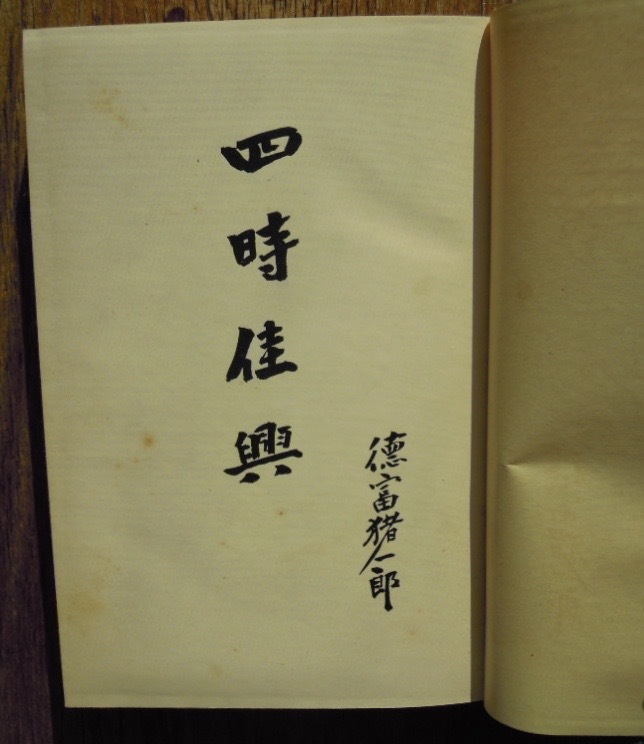 四時佳興
德富猪一郎